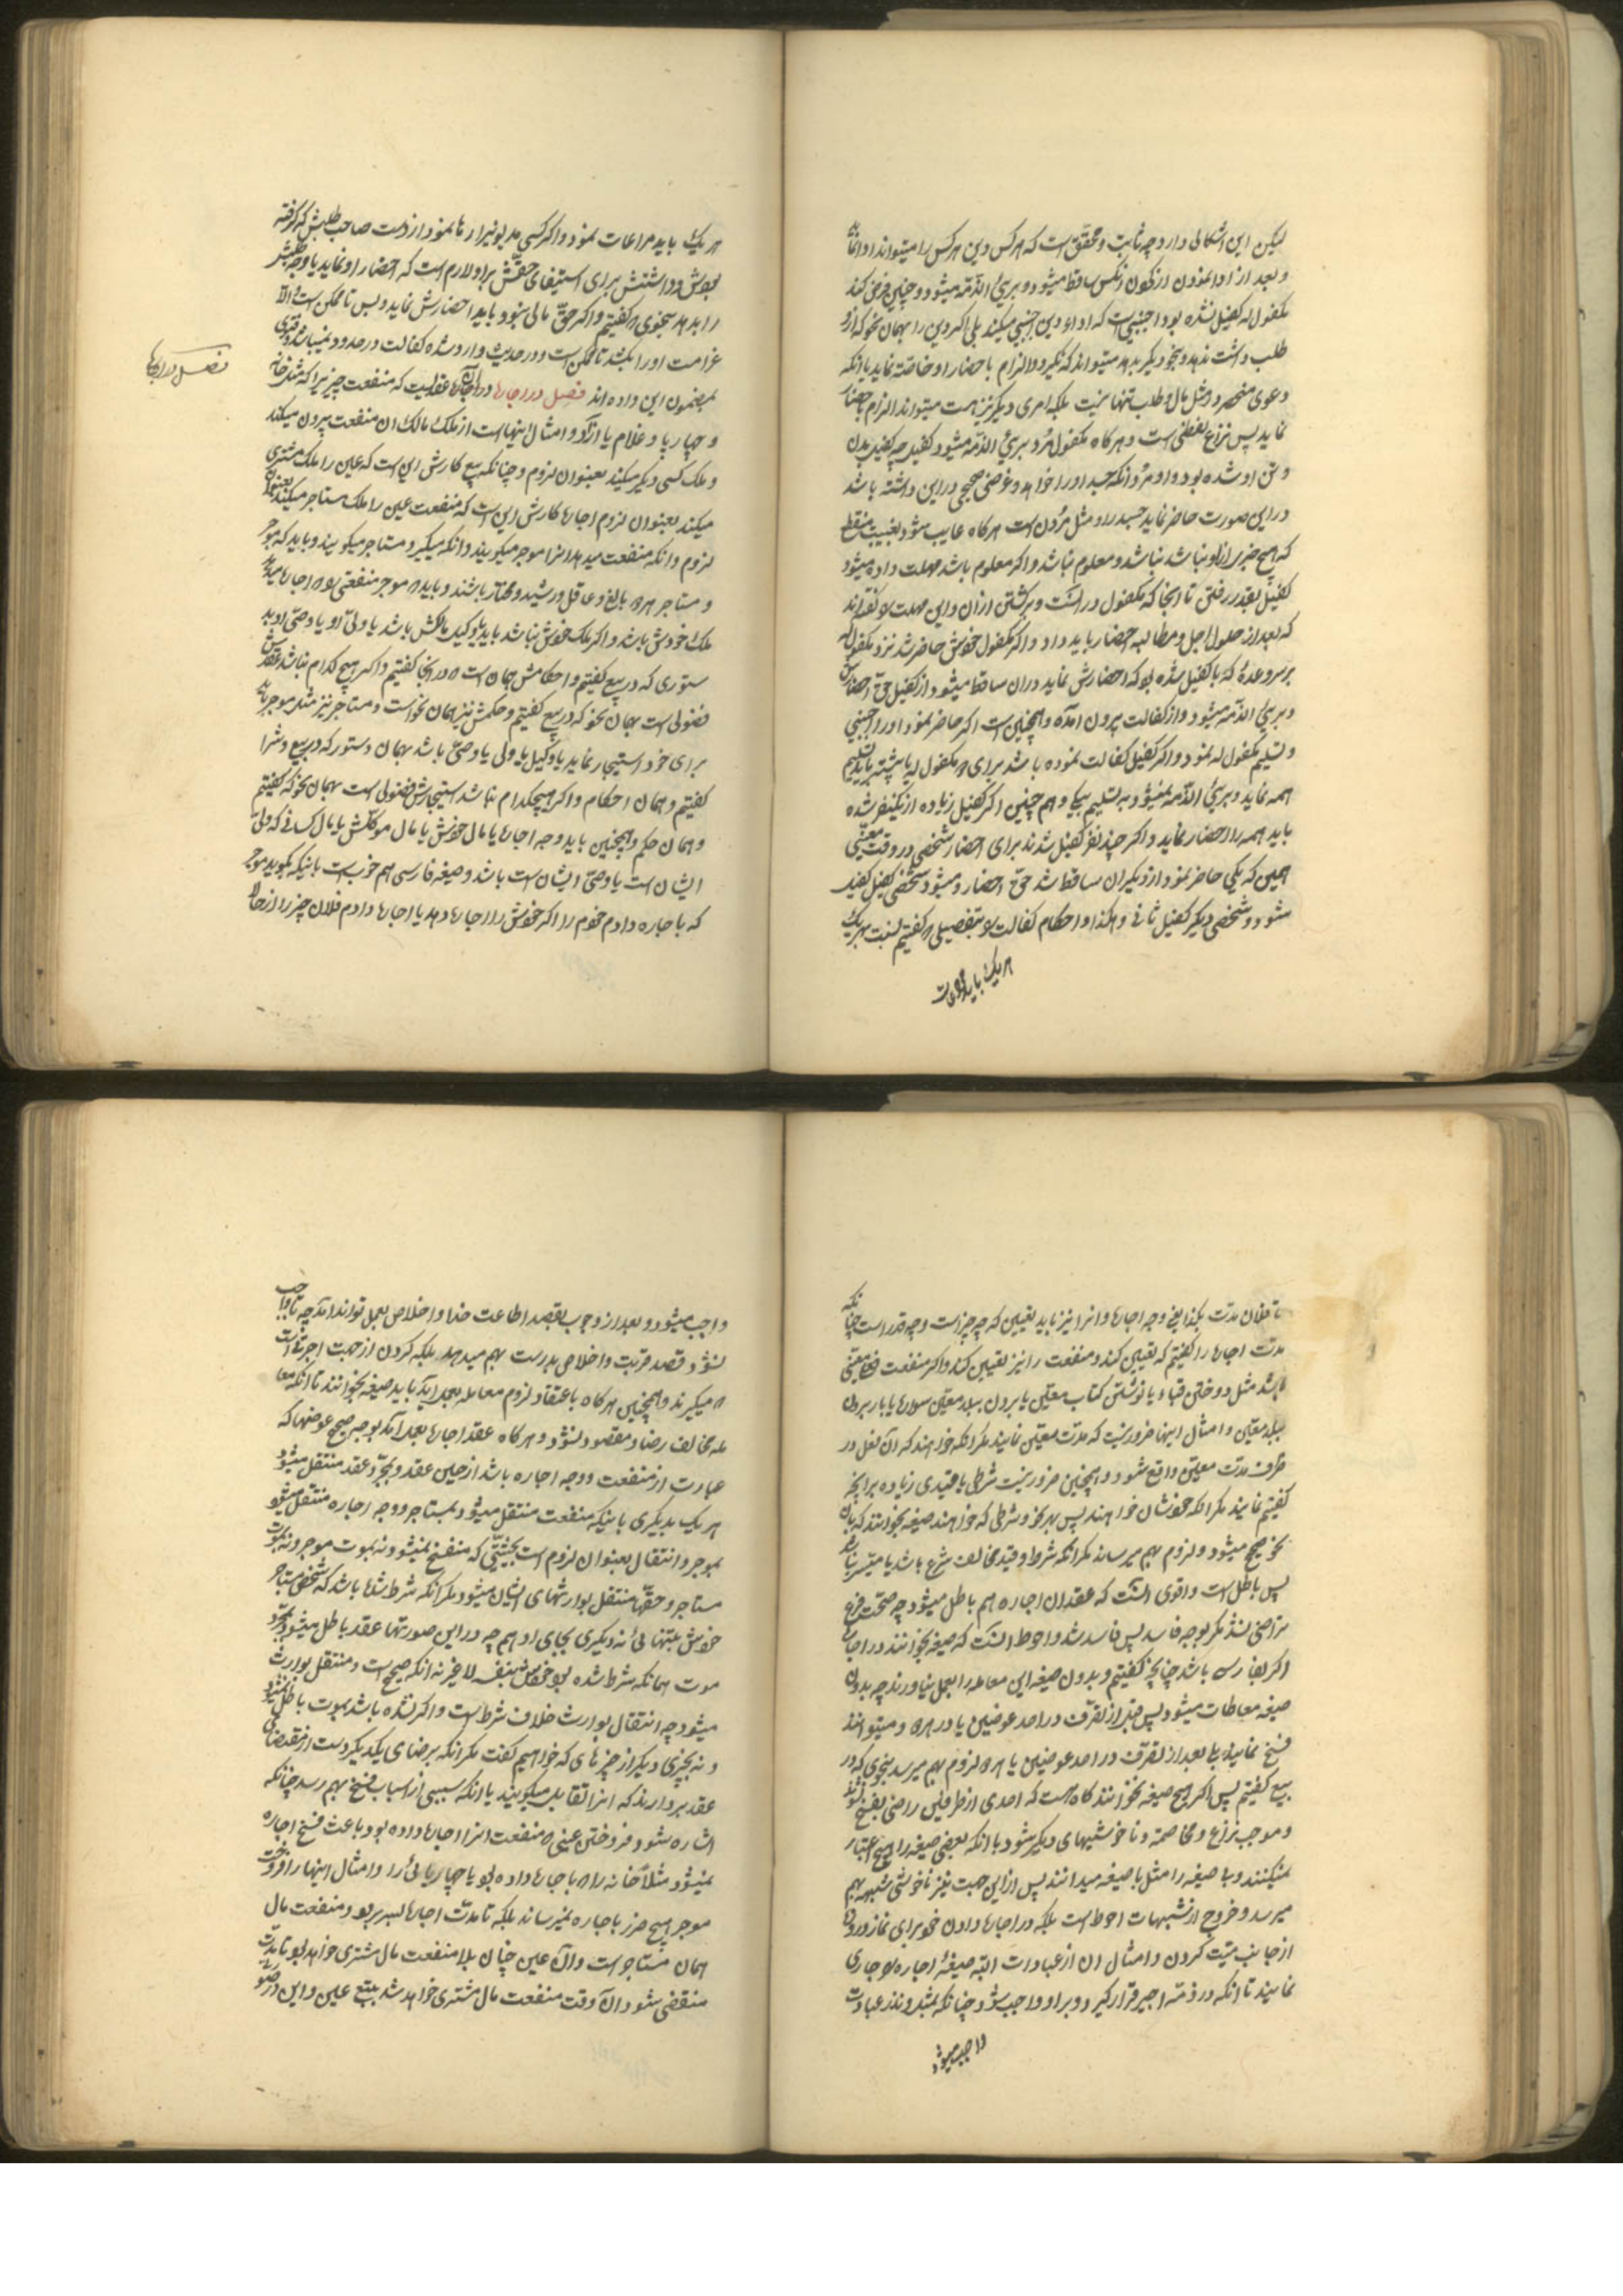 لیکن این اشکالی دارد چه ثابت و محقق است که هر کس دین هر کس را میتواند ادا نماید
و بعد از ادا نمودن از گردن آنکس ساقط میشود و بریء الذمه میشود و چنین فرض کند
مکفول له کفیل نشده بود اجنبی است که اداء دین اجنبی میکند بلی اگر دین را بهمان نحو که از او
طلب داشت ندهد و بنحو دیگر بدهد میتواند که نگیرد و الزام باحضار او خاصه نماید یا آنکه
دعوی منحصر در مثل مال و طلب تنها نیست بلکه امری دیگر نیز هست میتواند الزام باحضار
نماید پس نزاع لفظی است و هر گاه مکفول مرد بریء الذمه میشود کفیل چه کفیل بدن
و تن او شده بود و او مرد و آنکه جسد او را خواهد و غرضی صحیحی در این داشته باشد
در این صورت حاضر نماید جسد را و مثل مردن است هر گاه غایب شود بغیبت منقطعه
که هیچ خبر از او نباشد و معلوم نباشد و اگر معلوم باشد مهلت داده میشود
کفیل بقدر رفتن تا آنجا که مکفول در آنست و برگشتن از آن و این مهلت
که بعد از حلول اجل و مطالبه احضار باید داد و اگر مکفول خودش حاضر شد نزد مکفول له
بر سر وعدهٔ که با کفیل شده بود که احضارش نماید در آن ساقط میشود از کفیل حق احضارش
و بریء الذمه میشود و از کفالت بیرون آمده و همچنین است اگر حاضر نمود او را اجنبی
و تسلیم مکفول له نمود و اگر کفیل کفالت نموده باشد برای دو مکفول له یا بیشتر باید تسلیم
همه نماید و بریء الذمه نمیشود بتسلیم یکی و هم چنین اگر کفیل زیاده از یکنفر شده
باید همه را احضار نماید و اگر چند نفر کفیل شدند برای احضار شخصی در وقت معینی
همین که یکی حاضر نمود از دیگران ساقط شد حق احضار و میشود شخصی کفیل کفیل
شود و شخصی دیگر کفیل ثانی و هکذا و احکام کفالت بتفصیلی که گفتیم نسبت بهر یک
هر یک باید مراعات
هر یک باید مراعات نمود و اگر کسی مدیونیرا رها نمود از دست صاحب طلبش که گرفته
بودش و داشتش برای استیفای حقش بر او لازم است که احضار او نماید یا وجه طلبش
را بدهد بنحوی که گفتیم و اگر حق مالی نبود باید احضارش نماید و بس تا ممکن است و الا
غرامت او را بکشد تا ممکن است و در حدیث وارد شده کفالت در حدود نمیباشد و فتوی
بمضمون این داده‌اند فصل در اجاره و اجاره عقدیست که منفعت چیزیرا که مثل خانه
و چهارپا و غلام یا آزاد و امثال اینهاست از ملک مالک آن منفعت بیرون میکند
و ملک کسی دیگر میکند بعنوان لزوم و چنانکه بیع کارش این است که عین را ملک مشتری
میکند بعنوان لزوم اجاره کارش این است که منفعت عین را ملک مستاجر میکند بعنوان
لزوم و آنکه منفعت میدهد آنرا موجر میگویند و آنکه میگیرد مستاجر میگویند و باید که موجر
و مستاجر هر دو بالغ و عاقل و رشید و مختار باشند و باید که موجر منفعتی که اجاره میدهد
ملک خودش باشد و اگر ملک خودش نباشد باید یا وکیل مالکش باشد یا ولی او یا وصی او بدستوری
که در بیع گفتیم و احکامش همان است که در آنجا گفتیم و اگر هیچ کدام نباشد عقدش
فضولی است بهمان نحو که در بیع گفتیم و حکمش نیز همان نحو است و مستاجر نیز مثل موجر باید
برای خود استیجار نماید یا وکیل یا ولی یا وصی باشد بهمان دستور که در بیع و شرا
گفتیم و همان احکام و اگر هیچکدام نباشد استیجارش فضولی است بهمان نحو که گفتیم
و همان حکم و همچنین باید وجه اجاره یا مال خودش یا مال موکلش یا مال کسانی که ولی
ایشان است یا وصی ایشان است باشد و صیغه فارسی هم خوب است باینکه بگوید موجر
که باجاره دادم خودم را اگر خودش را اجاره دهد یا اجاره دادم فلان چیز را از حالا
فصل در اجاره
تا فلان مدت بکذا یعنی وجه اجاره و آنرا نیز باید تعیین که چه چیز است و چه قدر است چنانکه
مدت اجاره را گفتیم که تعیین کند و منفعت را نیز تعیین کند و اگر منفعت معینی
باشد مثل دوختن قباء یا نوشتن کتاب معین یا بردن ببلد معین سواره یا بار بردن
ببلد معین و امثال اینها ضرور نیست که مدت معین نمایند مگر آنکه خواهند که آن فعل در
ظرف مدت معین واقع شود و همچنین ضرور نیست شرطی یا قیدی زیاده بر آنچه
گفتیم نمایند مگر آنکه خودشان خواهند پس بهر نحو و شرطی که خواهند صیغه بخوانند که بآن
نحو صحیح میشود و لزوم بهم میرساند مگر آنکه شرط و قید مخالف شرع باشد یا میسر نباشد
پس باطل است و اقوی آنست که عقد آن اجاره هم باطل میشود چه صحت فرع
تراضی نشد مگر بوجه فاسد پس فاسد شد و احوط آنست که صیغه بخوانند در اجاره
اگر بفارسی باشد چنانچه گفتیم و بدون صیغه این معامله را بعمل نیاورند چه بدون
صیغه معاطات میشود پس قبل از تصرف در احد عوضین یا در هر دو میتوانند
فسخ نمایند بلی بعد از تصرف در احد عوضین یا هر دو لزوم بهم میرسد بنحوی که در
بیع گفتیم پس اگر هیچ صیغه نخوانند گاه هست که احدی از طرفین راضی بفسخ نشود
و موجب نزاع و مخاصمه و ناخوشیهای دیگر شود با آنکه بعضی صیغه را هیچ اعتبار
نمیکنند و بی صیغه را مثل با صیغه میدانند پس از این جهت نیز ناخوشی شبهه بهم
میرسد و خروج از شبهات احوط است بلکه در اجاره دادن خود برای نماز و روزه
از جانب میت کردن و امثال آن از عبادات البته صیغهٔ اجاره جاری
نمایند تا آنکه در ذمه اجیر قرار گیرد و بر او واجب شود چنانکه بمثل و نذر عبادت
واجب میشود
واجب میشود و بعد از وجوب بقصد اطاعت خدا و اخلاص بعمل تواند آمد چه تا واجب
نشود قصد قربت و اخلاص بدرست بهم میدهد بلکه کردن از جهت اجرتی است
که میگیرند و همچنین هر گاه باعتقاد لزوم معامله بعمل آید باید صیغه بخوانند تا آنکه معامله
مخالف رضا و مقصود نشود و هر گاه عقد اجاره بعمل آمد بوجه صحیح عوضها که
عبارت از منفعت و وجه اجاره باشد از حین عقد و بمجرد عقد منتقل میشود
هر یک بدیگری باینکه منفعت منتقل میشود بمستاجر و وجه اجاره منتقل میشود
بموجر و انتقال بعنوان لزوم است بحیثیتی که منفسخ نمیشود نه بموت موجر و نه بموت
مستاجر و حقها منتقل بوارثهای ایشان میشود مگر آنکه شرط شده باشد که شخص مستاجر
خودش بتنهائی نه دیگری بجای او هم چه در این صورتها عقد باطل میشود بمجرد
موت همانکه شرط شده بود خودش بنفسه لا غیر نه آنکه صحیح است و منتقل بوارث
میشود چه انتقال بوارث خلاف شرط است و اگر نشده باشد بموت باطل نمیشود
و نه بچیزی دیگر از چیزهای که خواهیم گفت مگر آنکه برضای یکدیگر دست از مقتضای
عقد بردارند که آنرا تقایل میگویند یا آنکه سببی از اسباب فسخ بهم رسد چنانکه
اشاره شود و فروختن عینی که منفعت آنرا اجاره داده بود باعث فسخ اجاره
نمیشود مثلا خانه را که باجاره داده بود یا چهارپائی را و امثال اینها را فروخت
موجر هیچ ضرر باجاره نمیرساند بلکه تا مدت اجاره بسر برود و منفعت مال
همان مستاجر است و آن عین چنان بلا منفعت مال مشتری خواهد بود تا مدت
منقضی شود آن وقت منفعت مال مشتری خواهد شد بتبع عین و این در صورت